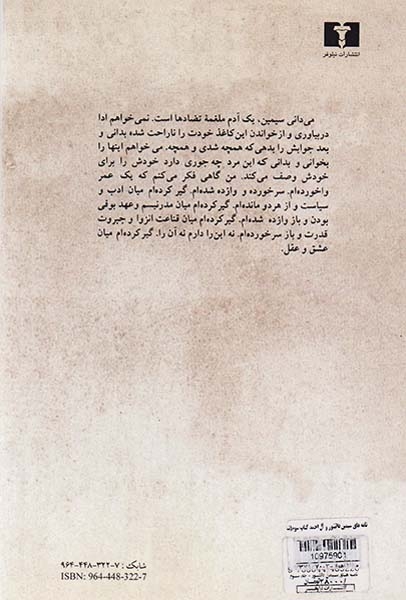 انتشارات نیلوفر
می‌دانی سیمین، یک آدم ملغمهٔ تضادها است. نمی‌خواهم ادا
دربیاوری و از خواندن این کاغذ خودت را ناراحت شده بدانی و
بعد جوابش را بدهی که همچه شدی و همچه. می‌خواهم اینها را
بخوانی و بدانی که این مرد چه جوری دارد خودش را برای
خودش وصف می‌کند. من گاهی فکر می‌کنم که یک عمر
واخورده‌ام. سرخورده و وازده شده‌ام. گیر کرده‌ام میان ادب و
سیاست و از هر دو مانده‌ام. گیر کرده‌ام میان مدرنیسم و عهد بوقی
بودن و باز وازده شده‌ام. گیر کرده‌ام میان قناعت انزوا و جبروت
قدرت و باز سرخورده‌ام. نه این را دارم نه آن را. گیر کرده‌ام میان
عشق و عقل.
نامه های سیمین دانشور و آل احمد کتاب سوم
10975901
شابک : ۷-۳۲۲-۴۴۸-۹۶۴
ISBN: 964-448-322-7